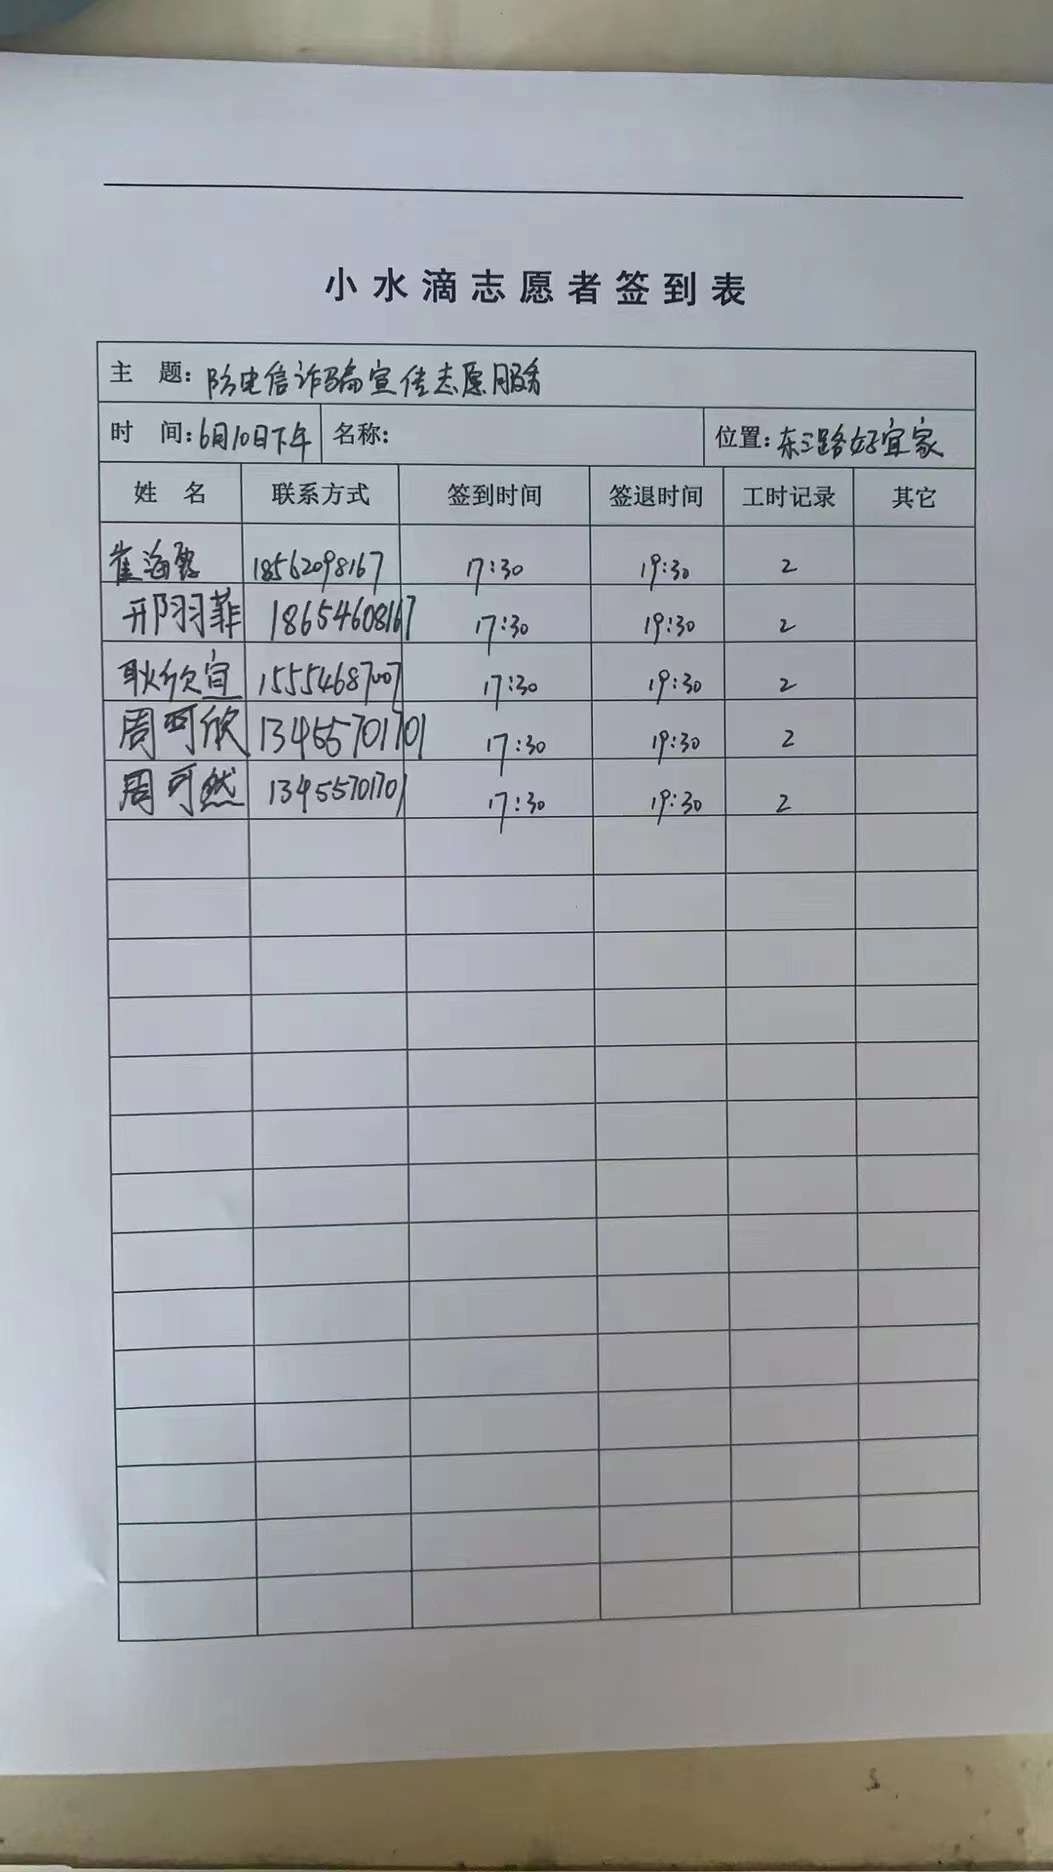 小水滴志愿者签到表
主 题: 防电信诈骗宣传志愿服务
时 间: 6月10日下午 名称: 位置: 东三路好宜家
姓 名 联系方式 签到时间 签退时间 工时记录 其它
崔海霞 18562098167 17:30 19:30 2
邢羽菲 18654608167 17:30 19:30 2
耿欣宜 15554687007 17:30 19:30 2
周可欣 13455701701 17:30 19:30 2
周可然 13455701701 17:30 19:30 2